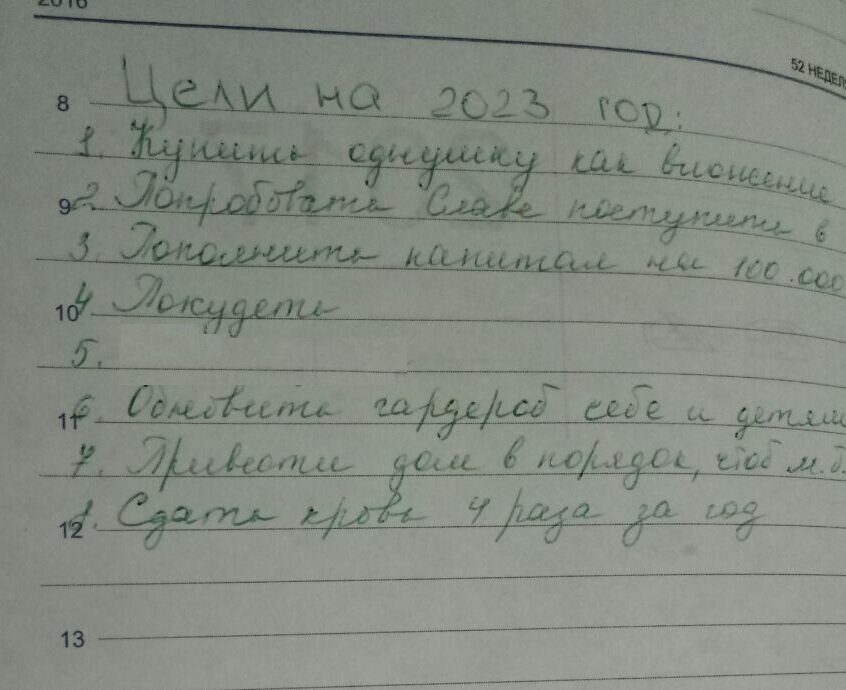 2016
52 НЕДЕЛ
8 Цели на 2023 год:
1. Купить однушку как вложение
9 2. Попробовать Славе поступить в
3. Пополнить капитал на 100.000
10 4 Похудеть
5.
11 6. Обновить гардероб себе и детям
7. Привести дом в порядок, чтоб м.б.
12 8. Сдать кровь 4 раза за год
13